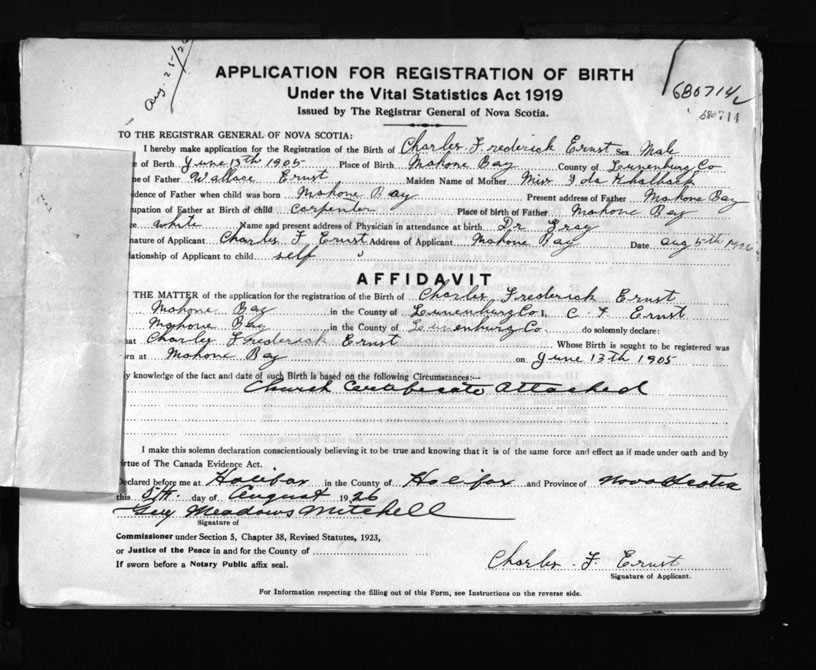 Aug. 25/26
APPLICATION FOR REGISTRATION OF BIRTH
Under the Vital Statistics Act 1919
Issued by The Registrar General of Nova Scotia.
680714½
680714
TO THE REGISTRAR GENERAL OF NOVA SCOTIA:
I hereby make application for the Registration of the Birth of Charles Frederick Ernst Sex Male
e of Berth June 13th 1905 Place of Birth Mahone Bay County of Lunenburg Co
ne of Father Wallace Ernst Maiden Name of Mother Miss Ida
idence of Father when child was born Mahone Bay Present address of Father Mahone Bay
upation of Father at Birth of child carpenter Place of birth of Father Mahone Bay
e white Name and present address of Physician in attendance at birth Dr Gray
nature of Applicant Charles F. Ernst Address of Applicant Mahone Bay Date Aug 5th 1926
lationship of Applicant to child self
AFFIDAVIT
THE MATTER of the application for the registration of the Birth of Charles Frederick Ernst
Mahone Bay in the County of Lunenburg Co I, C F Ernst
Mahone Bay in the County of Lunenburg Co. do solemnly declare:
at Charles Frederick Ernst Whose Birth is sought to be registered was
rn at Mahone Bay on June 13th 1905
y knowledge of the fact and date of such Birth is based on the following Circumstances:—
Church Certificate Attached
I make this solemn declaration conscientiously believing it to be true and knowing that it is of the same force and effect as if made under oath and by
irtue of The Canada Evidence Act.
Declared before me at Halifax in the County of Halifax and Province of Nova Scotia
this 5th day of August 1926
Guy Meadows Mitchell
Signature of
Commissioner under Section 5, Chapter 38, Revised Statutes, 1923,
or Justice of the Peace in and for the County of
If sworn before a Notary Public affix seal.
Charles F. Ernst
Signature of Applicant.
For Information respecting the filling out of this Form, see Instructions on the reverse side.